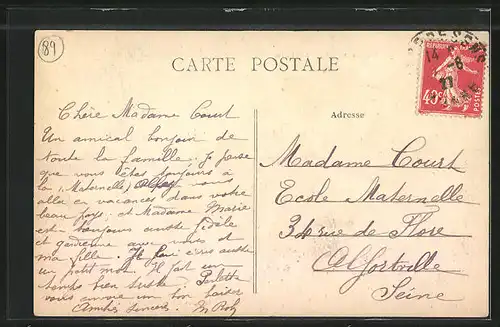 89
CARTE POSTALE
Adresse
Chère Madame Court
Un amical bonjour de
toute la famille; Je pense
que vous êtes toujours à
la (Maternelle)
allée en vacances dans votre
beau pays; et Madame Marie
est toujours aussi fidèle
et gardienne avec vous et
ma fille.
un petit mot. Il fait un
temps bien triste. Paulette
vous envoie un bon baiser
Amitiés sincères.
Madame Court
Ecole Maternelle
34 rue de Flore
Alfortville
Seine
14
POSTES